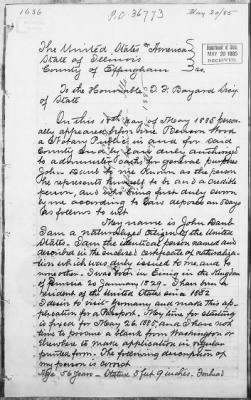 1636
P.O 36773
May 20/85
The United States of America
State of Illinois
County of Effingham ss.
Department of State
MAY 20 1885
RECEIVED
To the Honorable T. F. Bayard Secy
of State
On this 18th day of May 1885 person-
ally appeared before me
a Notary Public in and for said
County and by law duly authorized
to administer oaths for general purposes
John to me Known as the person
He represents himself to be and a credible
person, and who being first duly sworn
by me according to law deposes and says
as follows to wit
My name is John
I am a naturalized citizen of the United
States. I am the identical person named and
described in the enclosed Certificate of naturaliza-
tion which was duly issued to me and to
none other. I was born in in the Kingdom
of Prussia 20 January 1829. I have been a
resident of the United States since 1852
I desire to visit Germany and make this ap-
plication for a Passport. My time for starting
is fixed for May 26 1885, and I have not
time to procure a blank from Washington or
elsewhere to make application in regular
printed form. The following description of
my person is correct
Age 56 years — Stature 5 feet 9 inches.